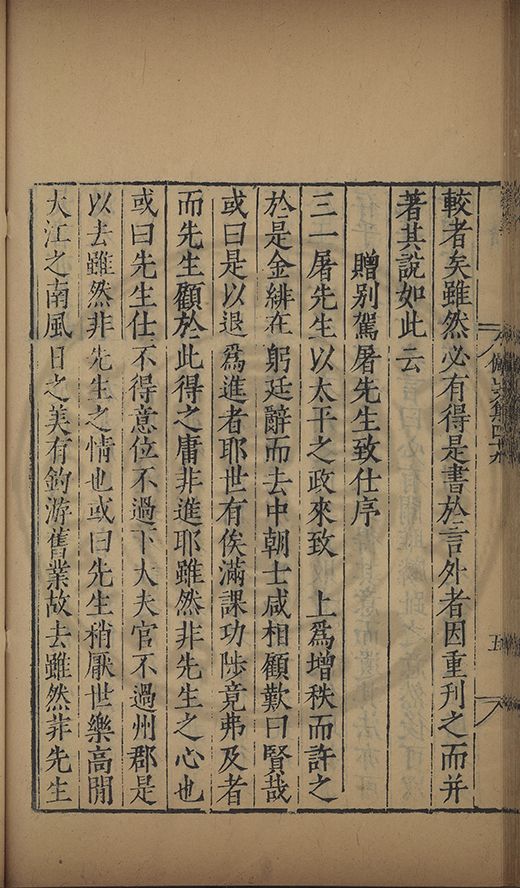 較者矣雖然必有得是書於言外者因重刊之而并
著其說如此云
贈別駕屠先生致仕序
三一屠先生以太平之政來致　上爲增秩而許之
於是金緋在躬廷辭而去中朝士咸相顧歎曰賢哉
或曰是以退爲進者耶世有俟滿課功陟竟弗及者
而先生顧於此得之庸非進耶雖然非先生之心也
或曰先生仕不得意位不過下大夫官不過州郡是
以去雖然非先生之情也或曰先生稍厭世樂高閒
大江之南風日之美有釣游舊業故去雖然非先生
五